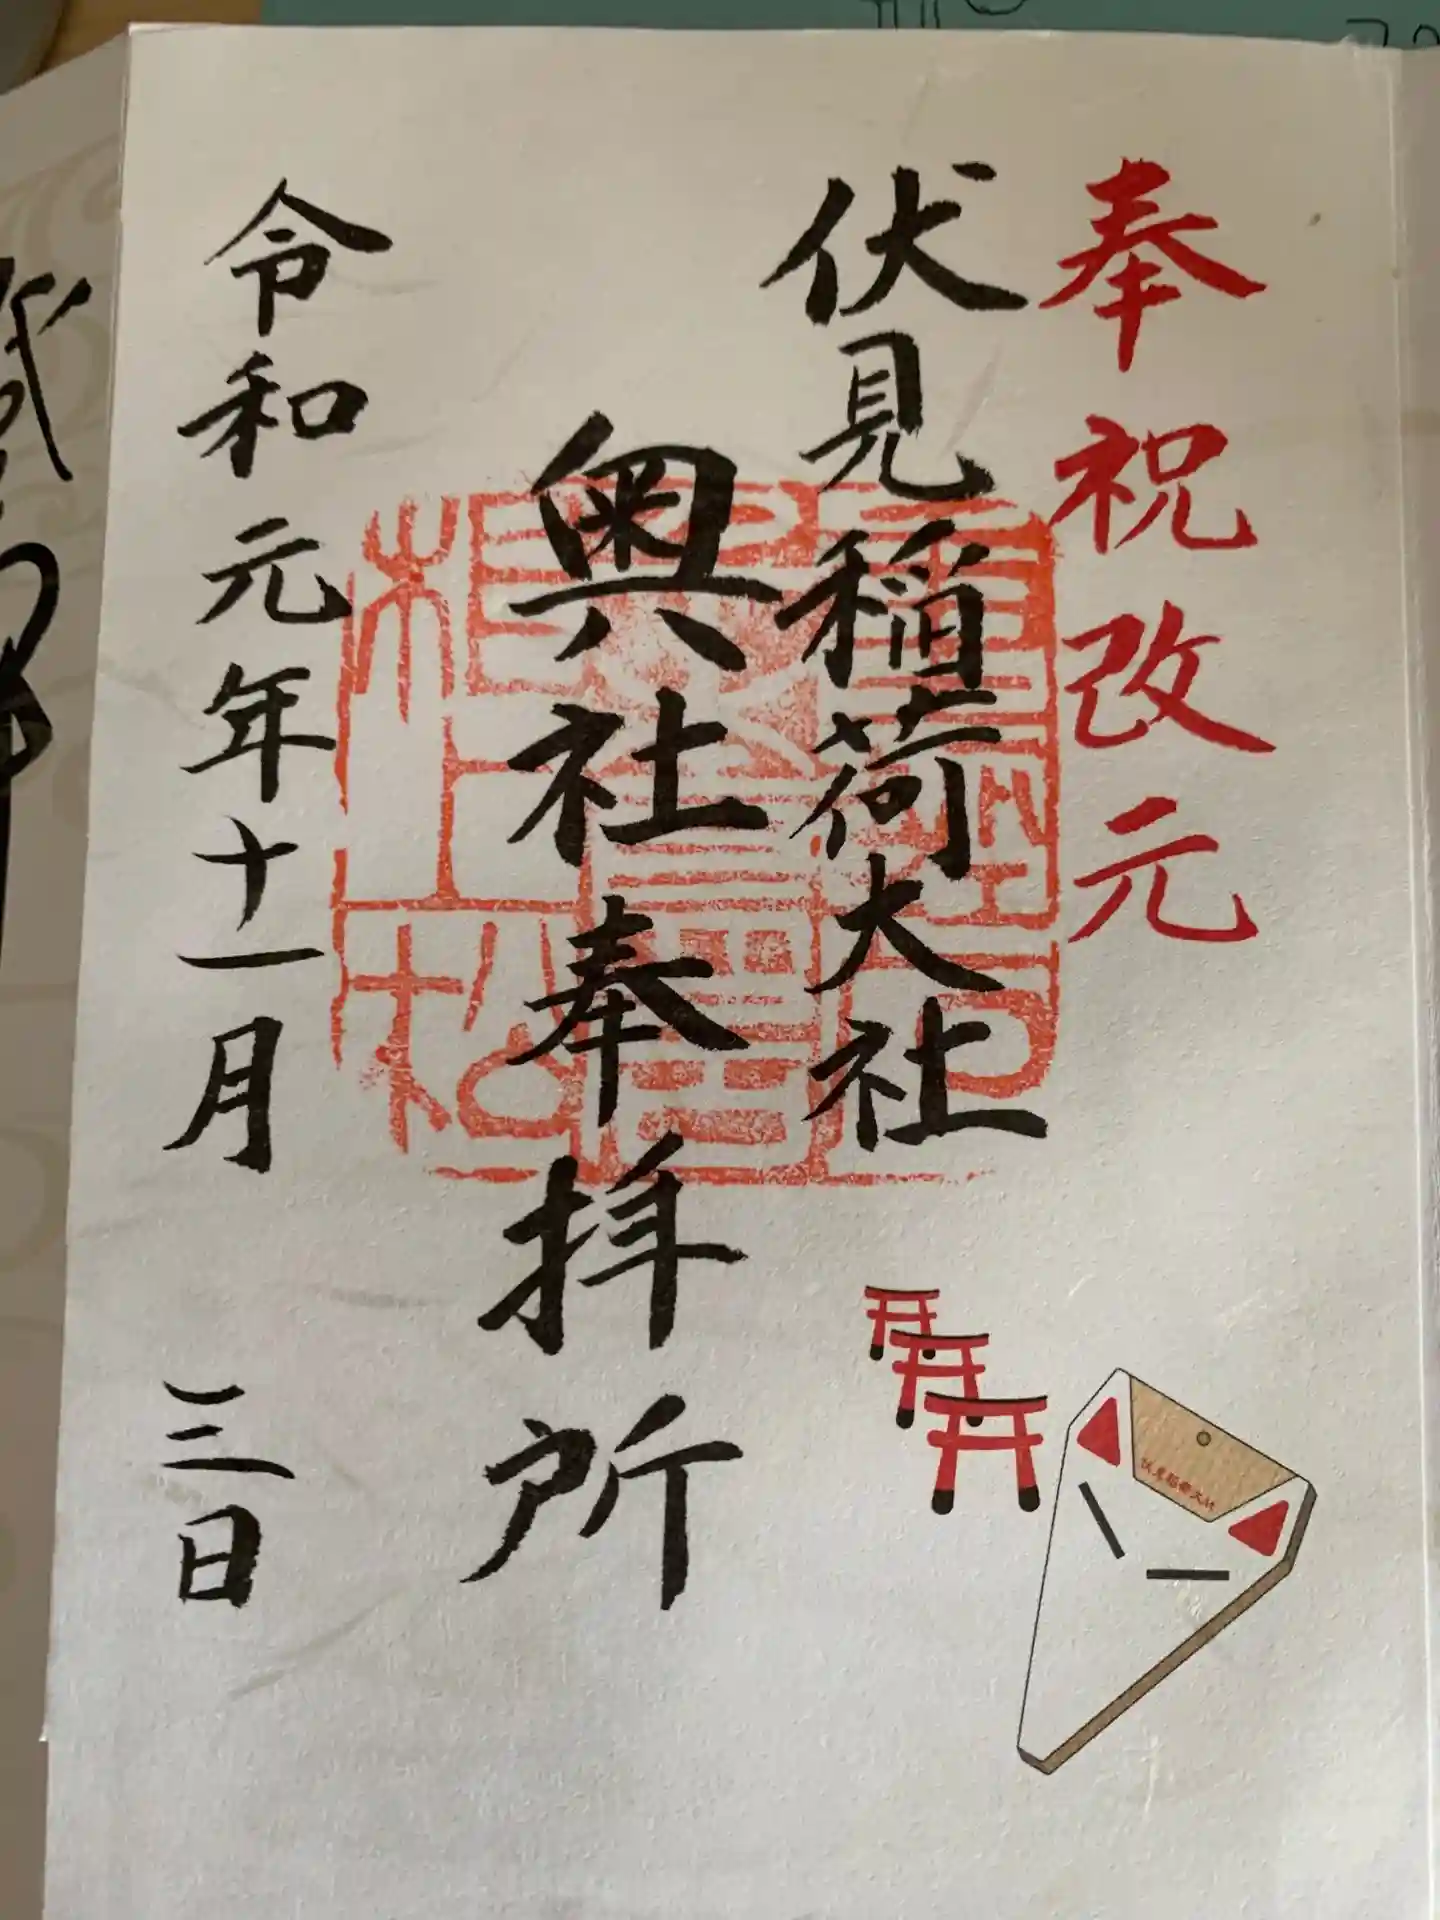 奉祝改元
伏見稲荷大社
奥社奉拝所
令和元年十一月三日
伏見稲荷大社